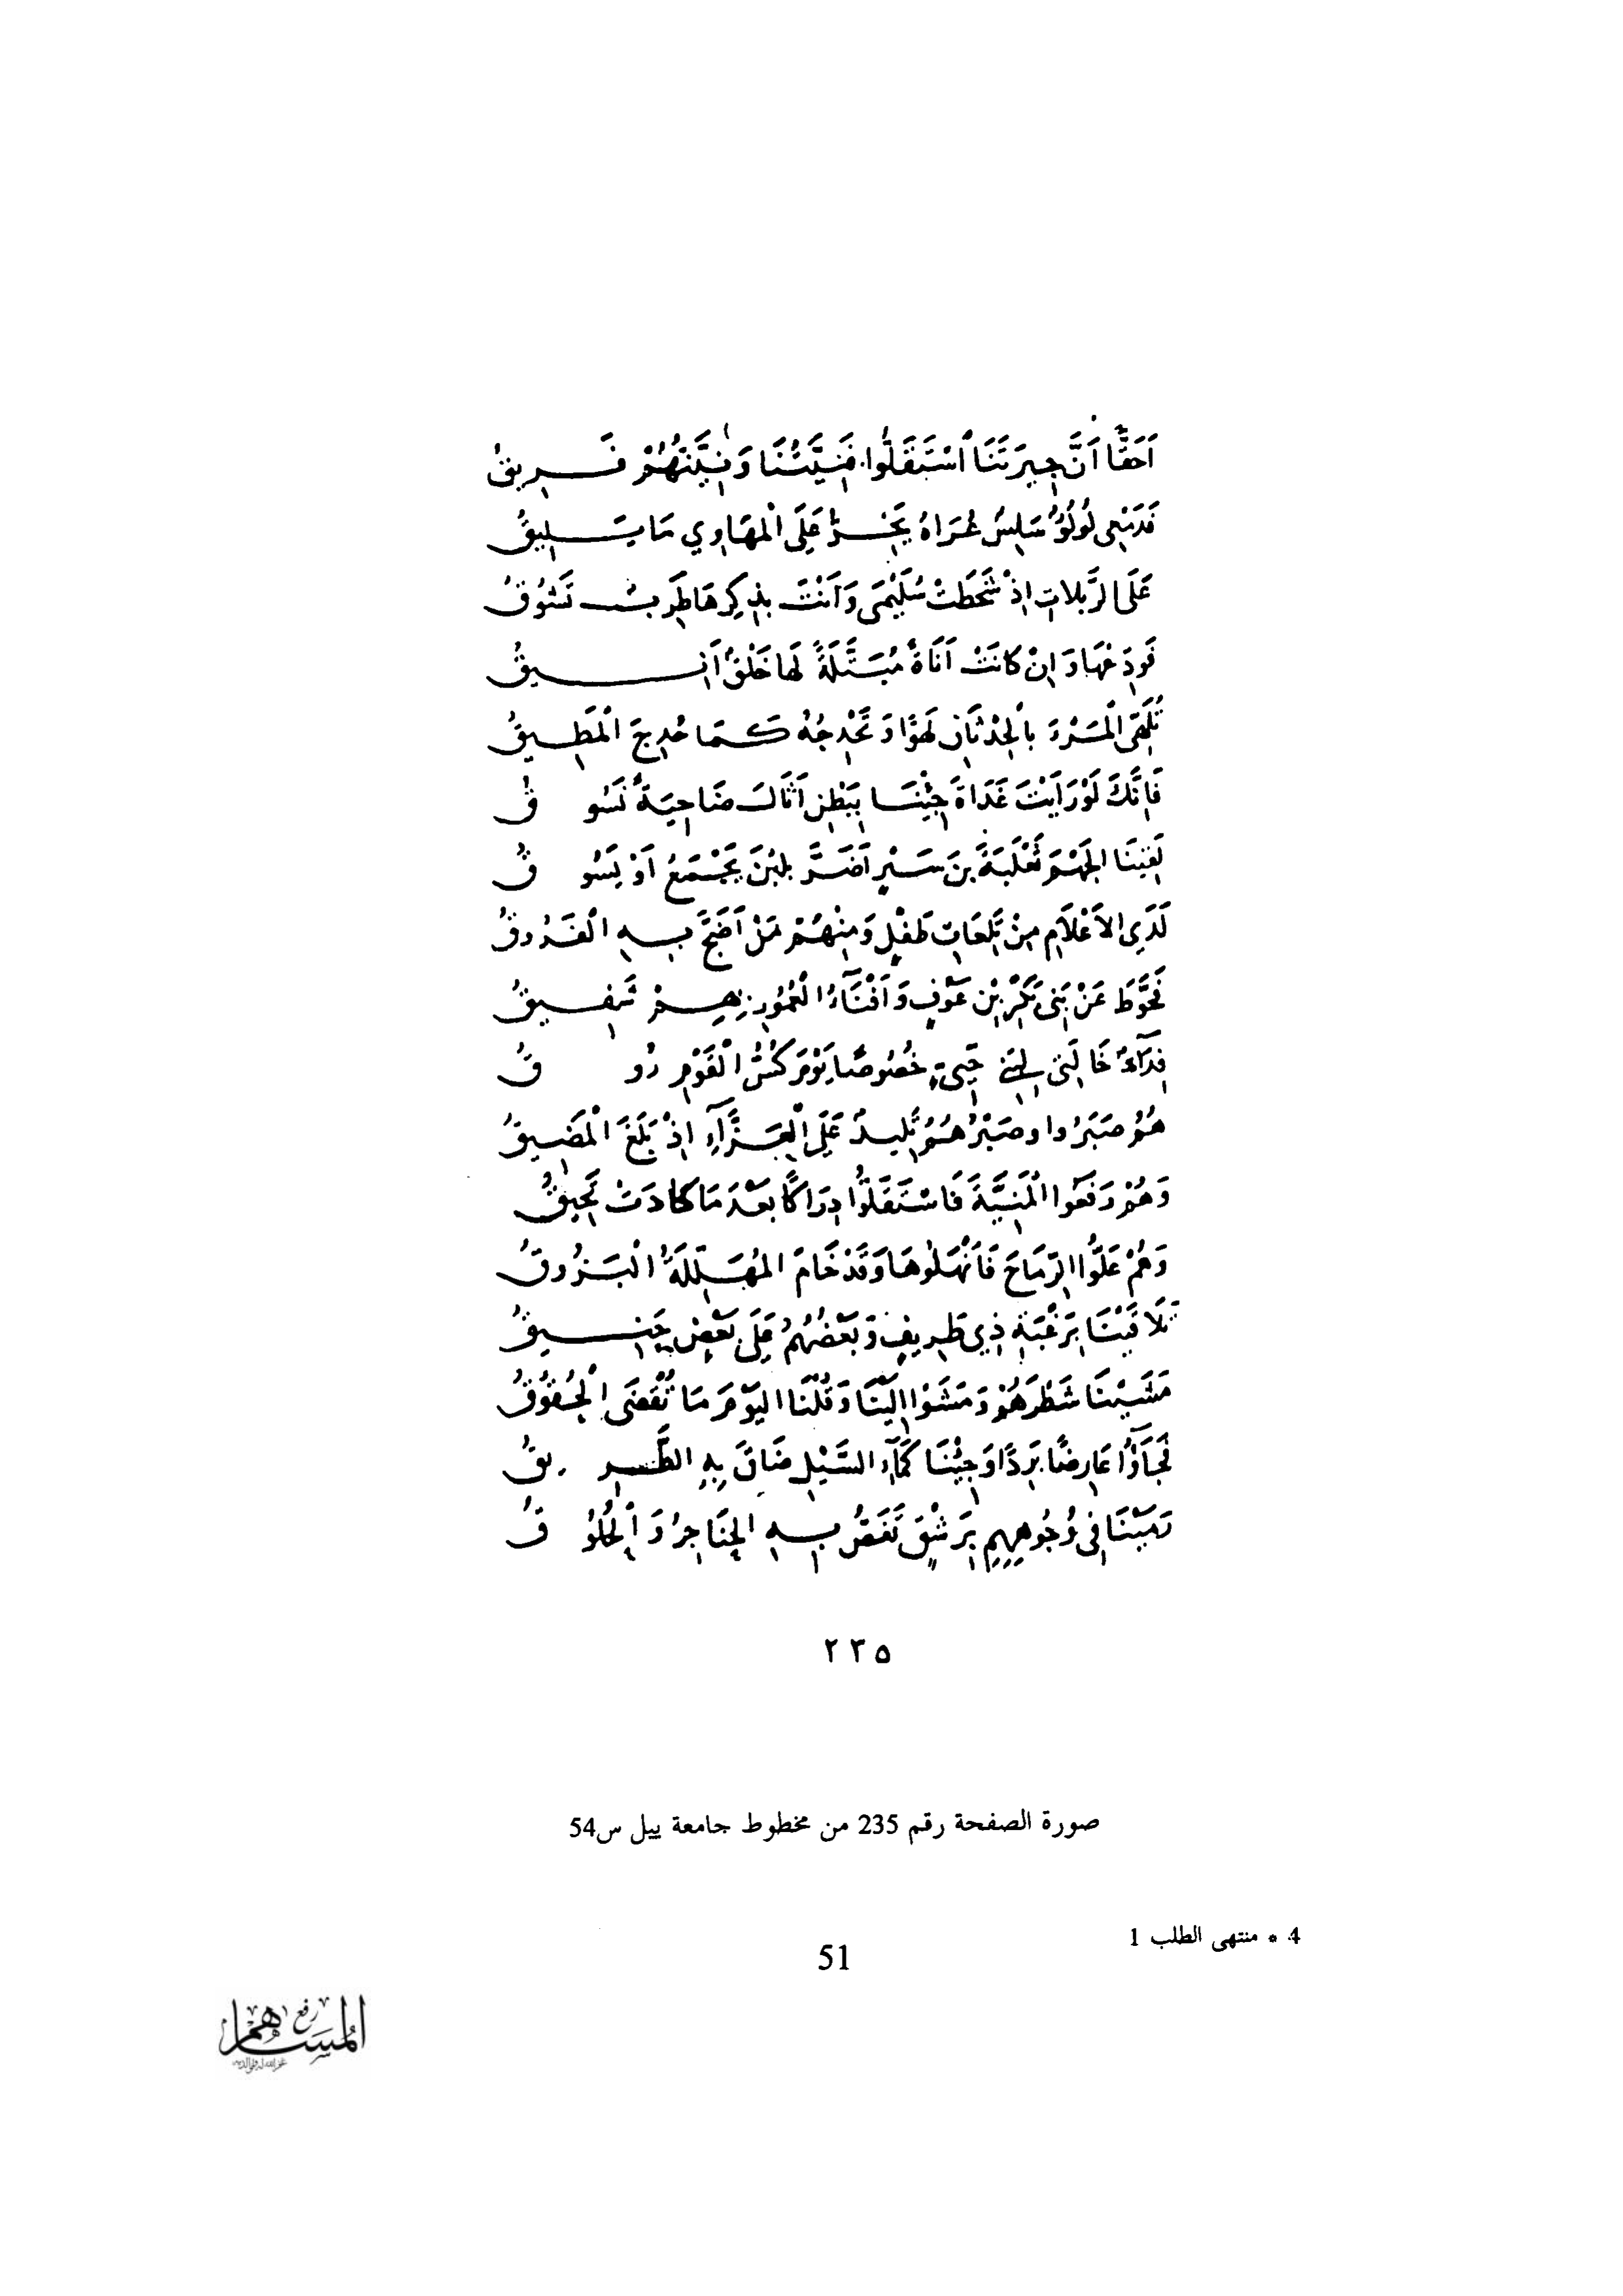 اَحَقًّا اَنَّ جِيرَتَنَا اسْتَقَلُّوا فَنِيَّتُنَا وَنِيَّتُهُمْ فَرِيقُ
فَدَمْعِى لُولُوٌ سَلِسٌ عُرَاهُ يَخِرُّ عَلَى الْمَهَاوِي مَا يَلِيقُ
عَلَى الرَّبَلَاتِ اِذْ شَحَطَتْ سُلَيْمَى وَاَنْتَ بِذِكْرِهَا طَرِبٌ تَشُوقُ
فَوَدِّعْهَا وَاِنْ كَانَتْ اَنَاةً مُبَتَّلَةً لَهَا خَلْقٌ اَنِيقُ
تُلَهِّى الْمَرْءَ بِالْحِدْثَانِ لَهْوًا وَتَحْدِجُهُ كَمَا حُدِجَ الْمَطِيقُ
فَاِنَّكَ لَوْ رَاَيْتَ غَدَاةَ جِئْنَا بِبَطْنِ اَثَالَ ضَاحِيَةً نَسُوقُ
لَقِينَا الْجَهْمَ ثَعْلَبَةَ بْنَ سَيْرٍ اَضَرَّ بِمَنْ يَجْمَعُ اَوْ يَسُوقُ
لَدَى الْاَعْلَامِ مِنْ تَلَعَاتِ طَفْلٍ وَمِنْهُمْ مَنْ اَضَجَّ بِهِ الْفُرُوقُ
فَحَوَّطَ عَنْ بَنِى بَكْرِ بْنِ عَوْفٍ وَاَفْنَاءُ الْعُمُورِ بِهِمْ شَفِيقُ
فِدَاءٌ خَالَتِى لِبَنِى حُيَىٍّ خُصُوصًا يَوْمَ كُسُّ الْقَوْمِ رُوقُ
هُمُ صَبَرُوا وَصَبْرُهُمُ تَلِيدٌ عَلَى الْعَزَّاءِ اِذْ بَلَغَ الْمَضِيقُ
وَهُمْ رَفَعُوا الْمَنِيَّةَ فَاسْتَقَلُّوا دِرَاكًا بَعْدَ مَا كَادَتْ تَحِيقُ
وَهُمْ عَلُّوا الرِّمَاحَ فَاَنْهَلُوهَا وَقَدْ خَامَ الْمُهَلِّلَةُ الْبَرُوقُ
تَلَاقَيْنَا بَرَغْبَةِ ذِي طَرِيفٍ وَبَعْضُهُمُ عَلَى بَعْضٍ حَنِيقُ
مَشَيْنَا شَطْرَهُمْ وَمَشَوْا اِلَيْنَا وَقُلْنَا الْيَوْمَ مَا تُقْضَى الْحُقُوقُ
فَجَاَؤُا عَارِضًا بَرِدًا وَجِئْنَا كَمَاءِ السَّيْلِ ضَاقَ بِهِ الطَّرِيقُ
رَمَيْنَا فِى وُجُوهِهِمِ بِرَشْقٍ تَغَصُّ بِهِ الْحَنَاجِرُ وَالْحُلُوقُ
٢٣٥
صورة الصفحة رقم 235 من مخطوط جامعة ييل س54
4 * منتهى الطلب 1
51